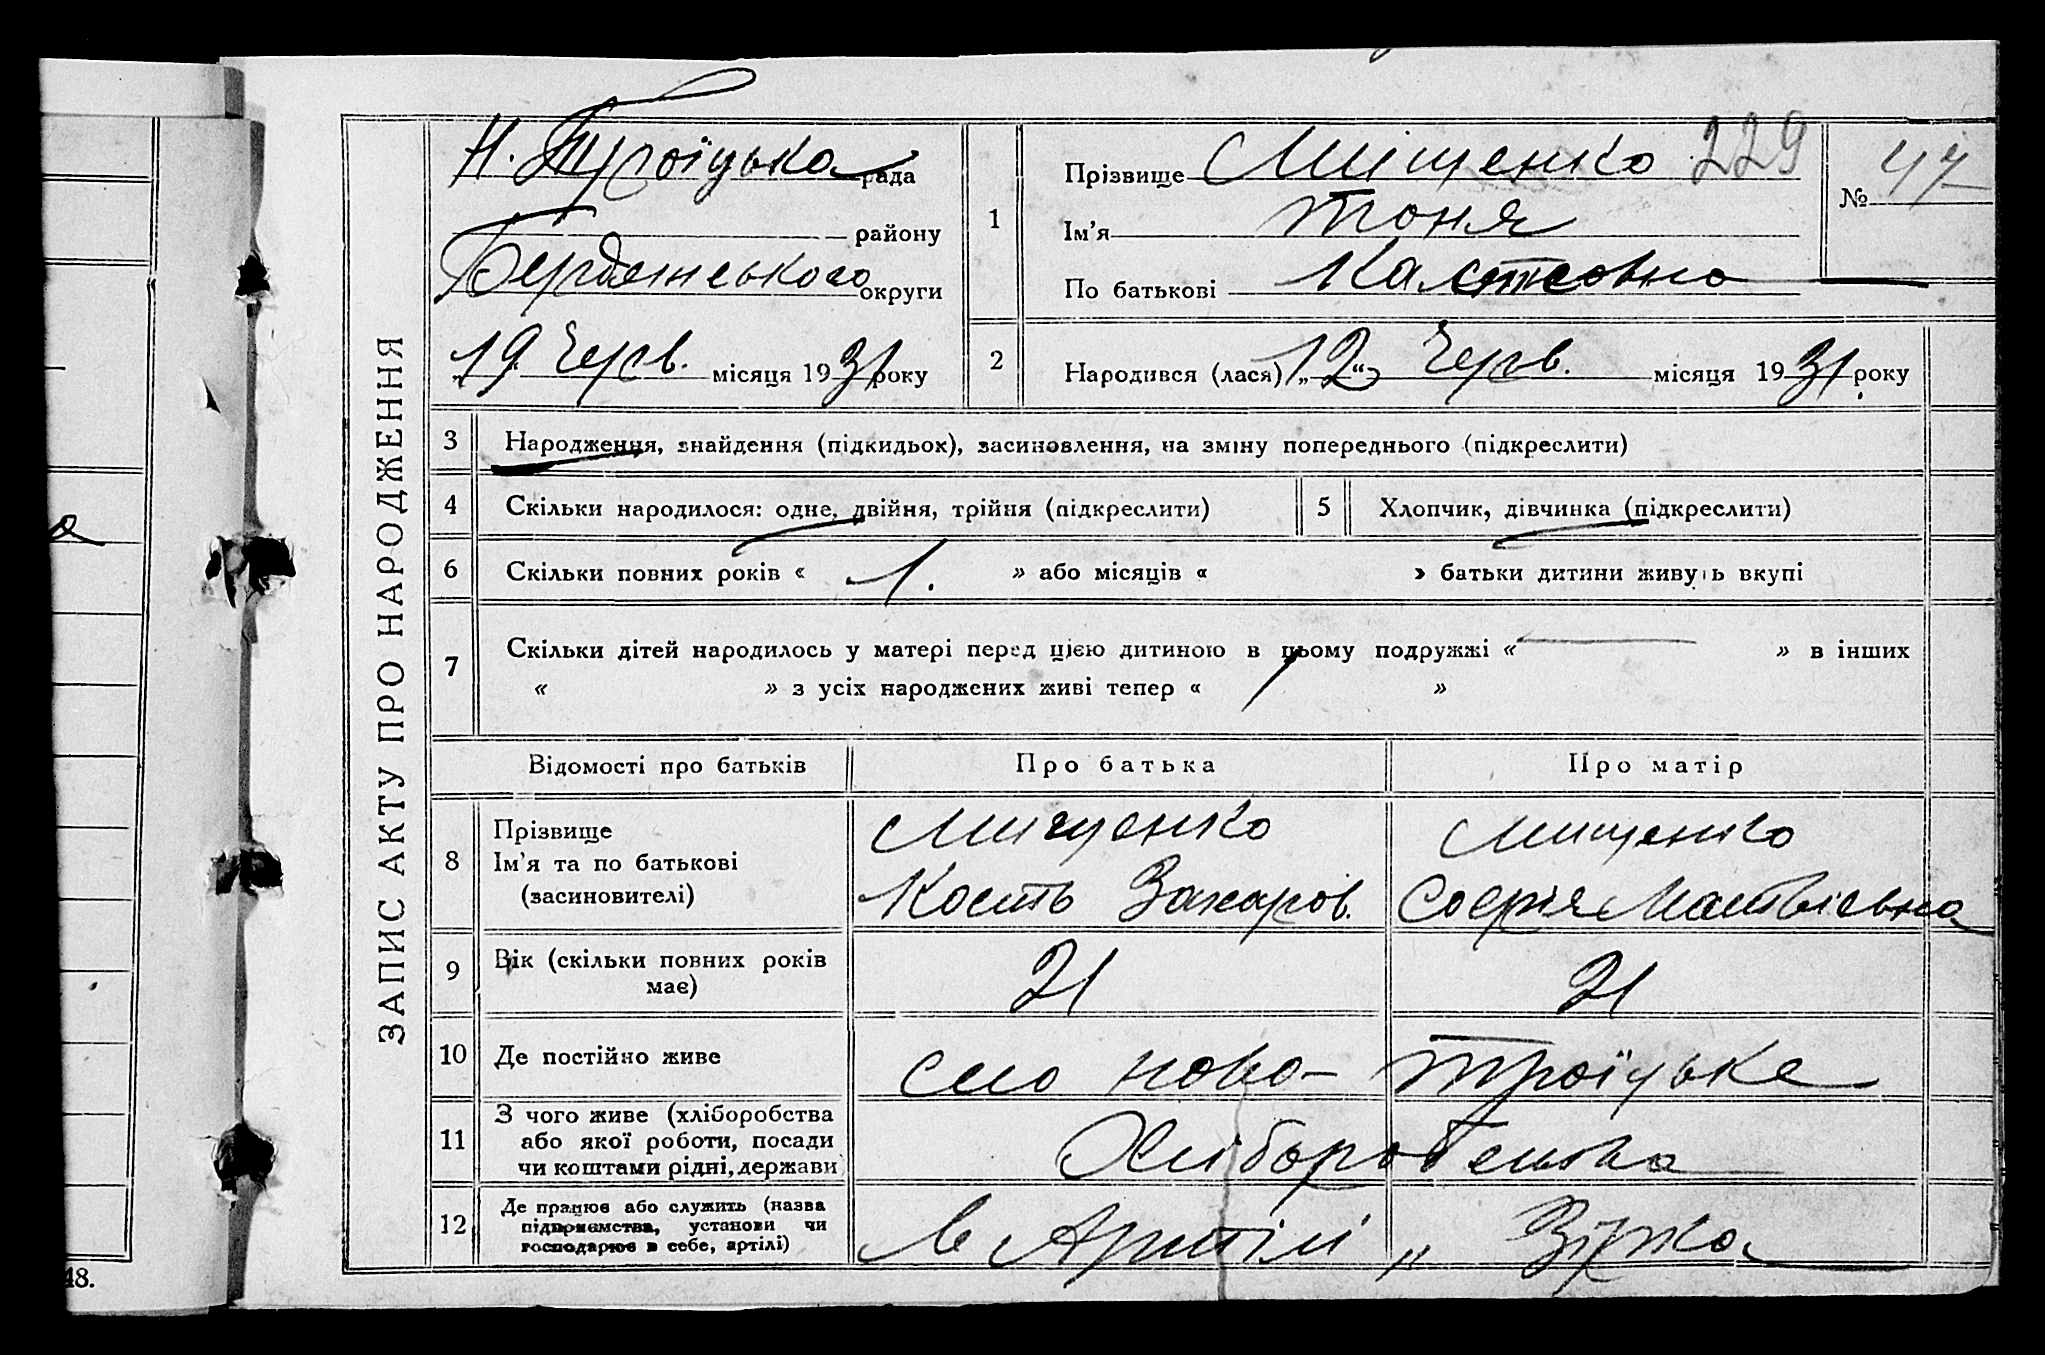 ЗАПИС АКТУ ПРО НАРОДЖЕННЯ
Н. Троїцька рада
району
Бердянського округи
„19 Черв. місяця 1931 року
1
Прізвище Міщенко 229
Ім'я Тоня
По батькові
№ 47
2
Народився (лася) „12“ Черв. місяця 1931 року
3 Народження, знайдення (підкидьох), засиновлення, на зміну попереднього (підкреслити)
4 Скільки народилося: одне, двійня, трійня (підкреслити) 5 Хлопчик, дівчинка (підкреслити)
6 Скільки повних років « 1. » або місяців « » батьки дитини живуть вкупі
7 Скільки дітей народилось у матері перед цією дитиною в цьому подружжі « — » в інших
« » з усіх народжених живі тепер « »
Відомості про батьків Про батька Про матір
8 Прізвище
Ім'я та по батькові
(засиновителі)
Мищенко
Кость Захаров.
Мищенко
Софія Матвієвна
9 Вік (скільки повних років
має)
21 21
10 Де постійно живе село Ново-Троїцьке
11 З чого живе (хліборобства
або якої роботи, посади
чи коштами рідні, держави)
Хліборобства
12 Де працює або служить (назва
підприємства, установи чи
господарює в себе, артілі)
в Артілі „ Зірка
48.